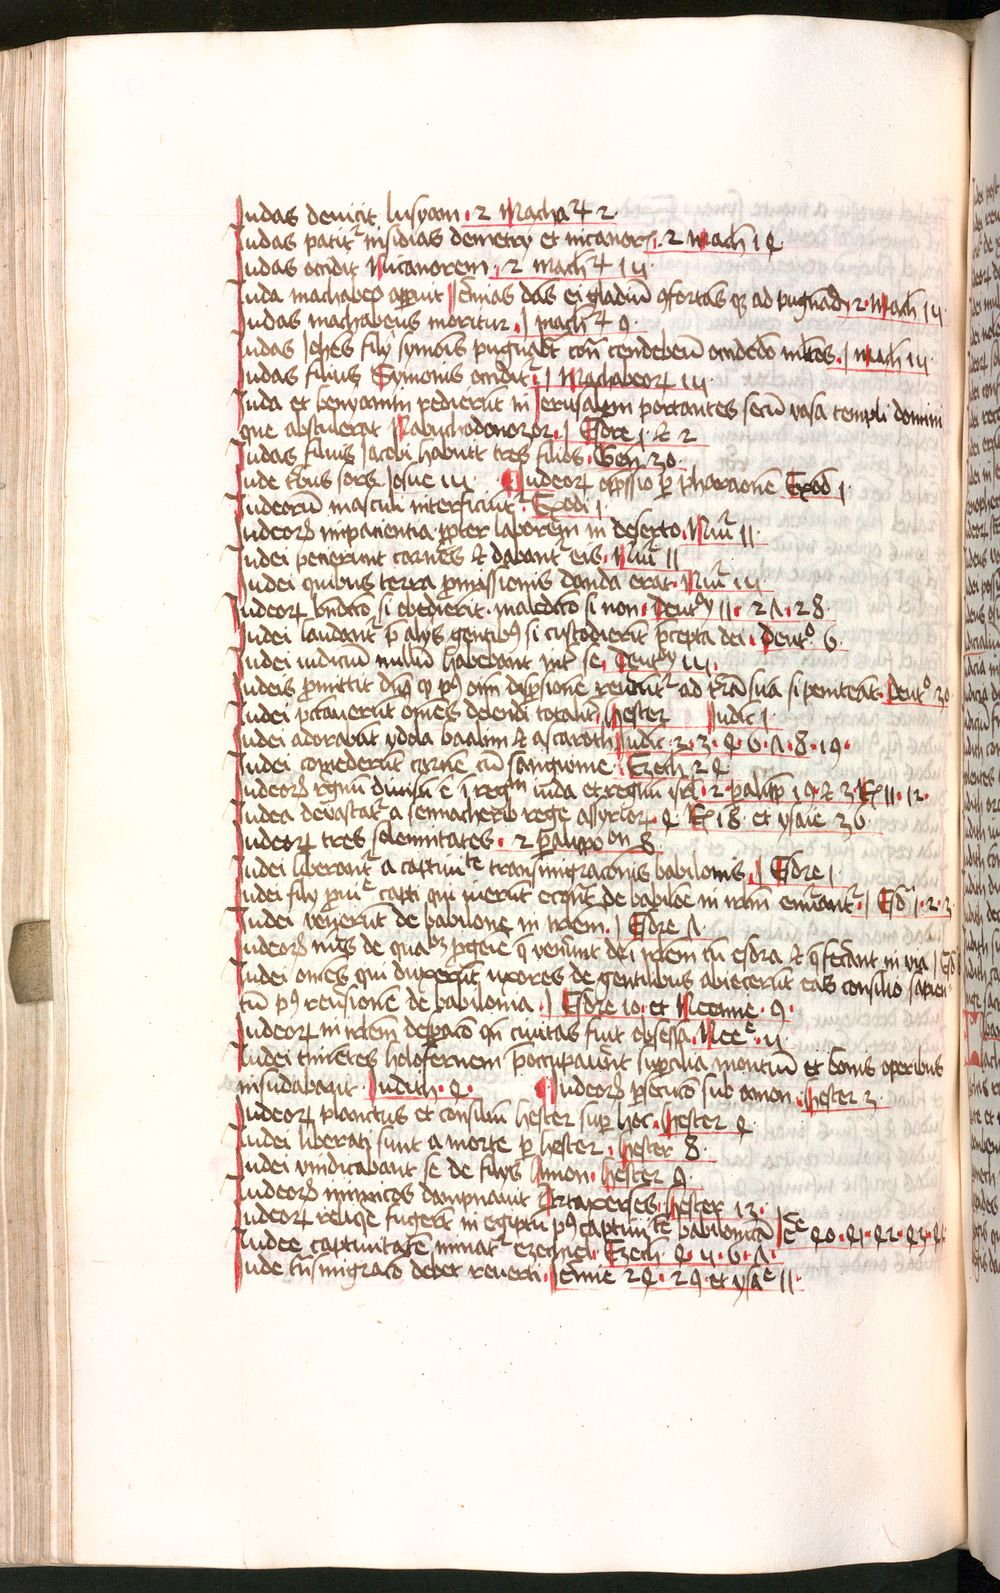 Iudas deuicit lusyam · 2 Macha 2
Iudas patit insidias demetrij et nicanor · 2 mach 14
Iudas occidit Nicanorem · 2 mach 15 ·
Iuda machabeo apparuit Jeremias das ei gladiu ofortas q ad pugnad 2 · Mach 15
Iudas machabeus moritur · 1 mach 9 ·
Iudas Johes filij symois pugnabt cont cendebeu m 1 mach 15 ·
Iudas filius Symonis occidit · 1 Machabeor 15 ·
Iuda et benyamin redierut in Jerusalem portantes secu vasa templi domini
que abstulerat Nabuchodonozor · 1 Esdre 1 · et 2
Iudas filius Jacobi habuit tres filios · Gen 30 ·
Iude tbus sors Josue 15 Iudeor opssio p Pharaone Exod 1
Iudeoru masculi interficiut Exodi 1 ·
Iudeor impacientia ppter laborem in deserto · Nuu 11 ·
Iudei petierunt carnes et dabant eis · Nuu 11
Iudei quibus terra pmissionis danda erat · Nuu 15 ·
Iudeor bndcto si obedierit · maledcto si non · Deutrj 11 · 27 · 28 ·
Iudei laudant p alijs gentibus si custodierit pcepta dei · Deuto 6 ·
Iudei iudiciu nullu habebant int se · Deutrj 15 ·
Iudeis pmittit dns q p oim dispsione reuertut ad tra sua si peniteat · Deuto 30
Iudei pctauerut omes deleudi totalit · Hester Judic 1 ·
Iudei adorabat ydola baalim et ascaroth Judic · 2 · 3 · 4 · 6 · 7 · 8 · 19 ·
Iudei comederut carne cu sanguine · Ezech 24 ·
Iudeor regnu diuisu e i regm iuda et regnu isrl · 2 palipp 19 · et 3 R 11 · 12 ·
Iudea deuastat a sennacherib rege assyrior · 4 R 18 · et ysaie 36 ·
Iudeor tres solemnitates · 2 palippoon 8 ·
Iudei liberant a captiuite transmigracois babilonis · 1 Esdre 1 ·
Iudei filij puie capti qui iuerut de babiloe in irlm · 1 Esd 1 · 2 · 3
Iudei venerut de babilone in irlem · 1 Esdre 7
Iudeor nus de qua pgeie q venerunt de irlem cu esdra et q fecerant in via 1 Esd
Iudei omes qui duxerut uxores de gentibus abiecerut eas consilio sapien
tu p reusione de babilonia · 1 Esdre 10 · et Neemie · 9 ·
Iudeor in irlem despaco qn ciuitas fuit obsessa · Neee · 4
Iudei timetes holofernem poccupauert supcilia montiu et bonis operibus
insudabant · Judith · 4 · Iudeor psecuco sub amon · Hester 3 ·
Iudeor planctus et consiliu hester sup hoc · Hester 4 ·
Iudei liberati sunt a morte p hester · Hester 8 ·
Iudei vindicabant se de filijs Amon · Hester 9 ·
Iudeor inimicos dampnauit Artaxerses · Hester 13 ·
Iudeor reliqe fugert in egiptu p captiuite babilonica Jee 40 · 41 · 42 · 43 · 44
Iudee captiuitate minat ezechiel · Ezech 4 · 5 · 6 · 7 ·
Iude tnsmigraco debet reuerti · Jeremie 24 · 29 et ysae 11 ·